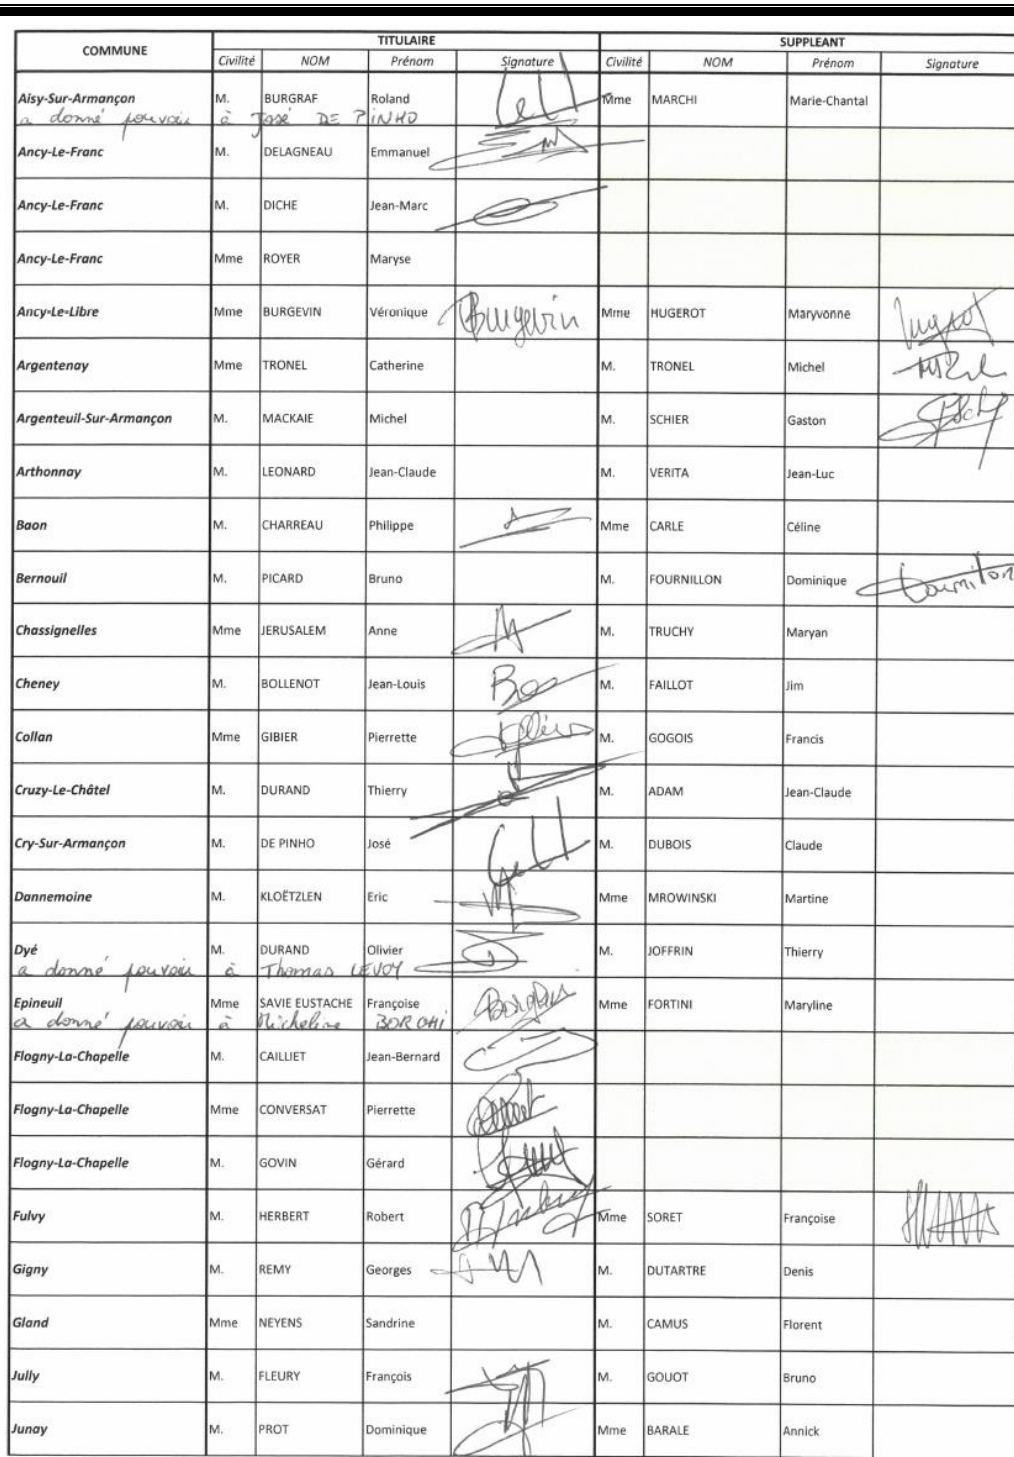 COMMUNE TITULAIRE SUPPLEANT
Civilité NOM Prénom Signature Civilité NOM Prénom Signature
Aisy-Sur-Armançon M. BURGRAF Roland Mme MARCHI Marie-Chantal
a donné pouvoir à José DE PINHO
Ancy-Le-Franc M. DELAGNEAU Emmanuel
Ancy-Le-Franc M. DICHE Jean-Marc
Ancy-Le-Franc Mme ROYER Maryse
Ancy-Le-Libre Mme BURGEVIN Véronique Burgevin Mme HUGEROT Maryvonne
Argentenay Mme TRONEL Catherine M. TRONEL Michel
Argenteuil-Sur-Armançon M. MACKAIE Michel M. SCHIER Gaston
Arthonnay M. LEONARD Jean-Claude M. VERITA Jean-Luc
Baon M. CHARREAU Philippe Mme CARLE Céline
Bernouil M. PICARD Bruno M. FOURNILLON Dominique
Chassignelles Mme JERUSALEM Anne M. TRUCHY Maryan
Cheney M. BOLLENOT Jean-Louis M. FAILLOT Jim
Collan Mme GIBIER Pierrette M. GOGOIS Francis
Cruzy-Le-Châtel M. DURAND Thierry M. ADAM Jean-Claude
Cry-Sur-Armançon M. DE PINHO José M. DUBOIS Claude
Dannemoine M. KLOËTZLEN Eric Mme MROWINSKI Martine
Dyé M. DURAND Olivier M. JOFFRIN Thierry
a donné pouvoir à Thomas LEVOY
Epineuil Mme SAVIE EUSTACHE Françoise Mme FORTINI Maryline
a donné pouvoir à Micheline BORGHI
Flogny-La-Chapelle M. CAILLIET Jean-Bernard
Flogny-La-Chapelle Mme CONVERSAT Pierrette
Flogny-La-Chapelle M. GOVIN Gérard
Fulvy M. HERBERT Robert Mme SORET Françoise
Gigny M. REMY Georges M. DUTARTRE Denis
Gland Mme NEYENS Sandrine M. CAMUS Florent
Jully M. FLEURY François M. GOUOT Bruno
Junay M. PROT Dominique Mme BARALE Annick